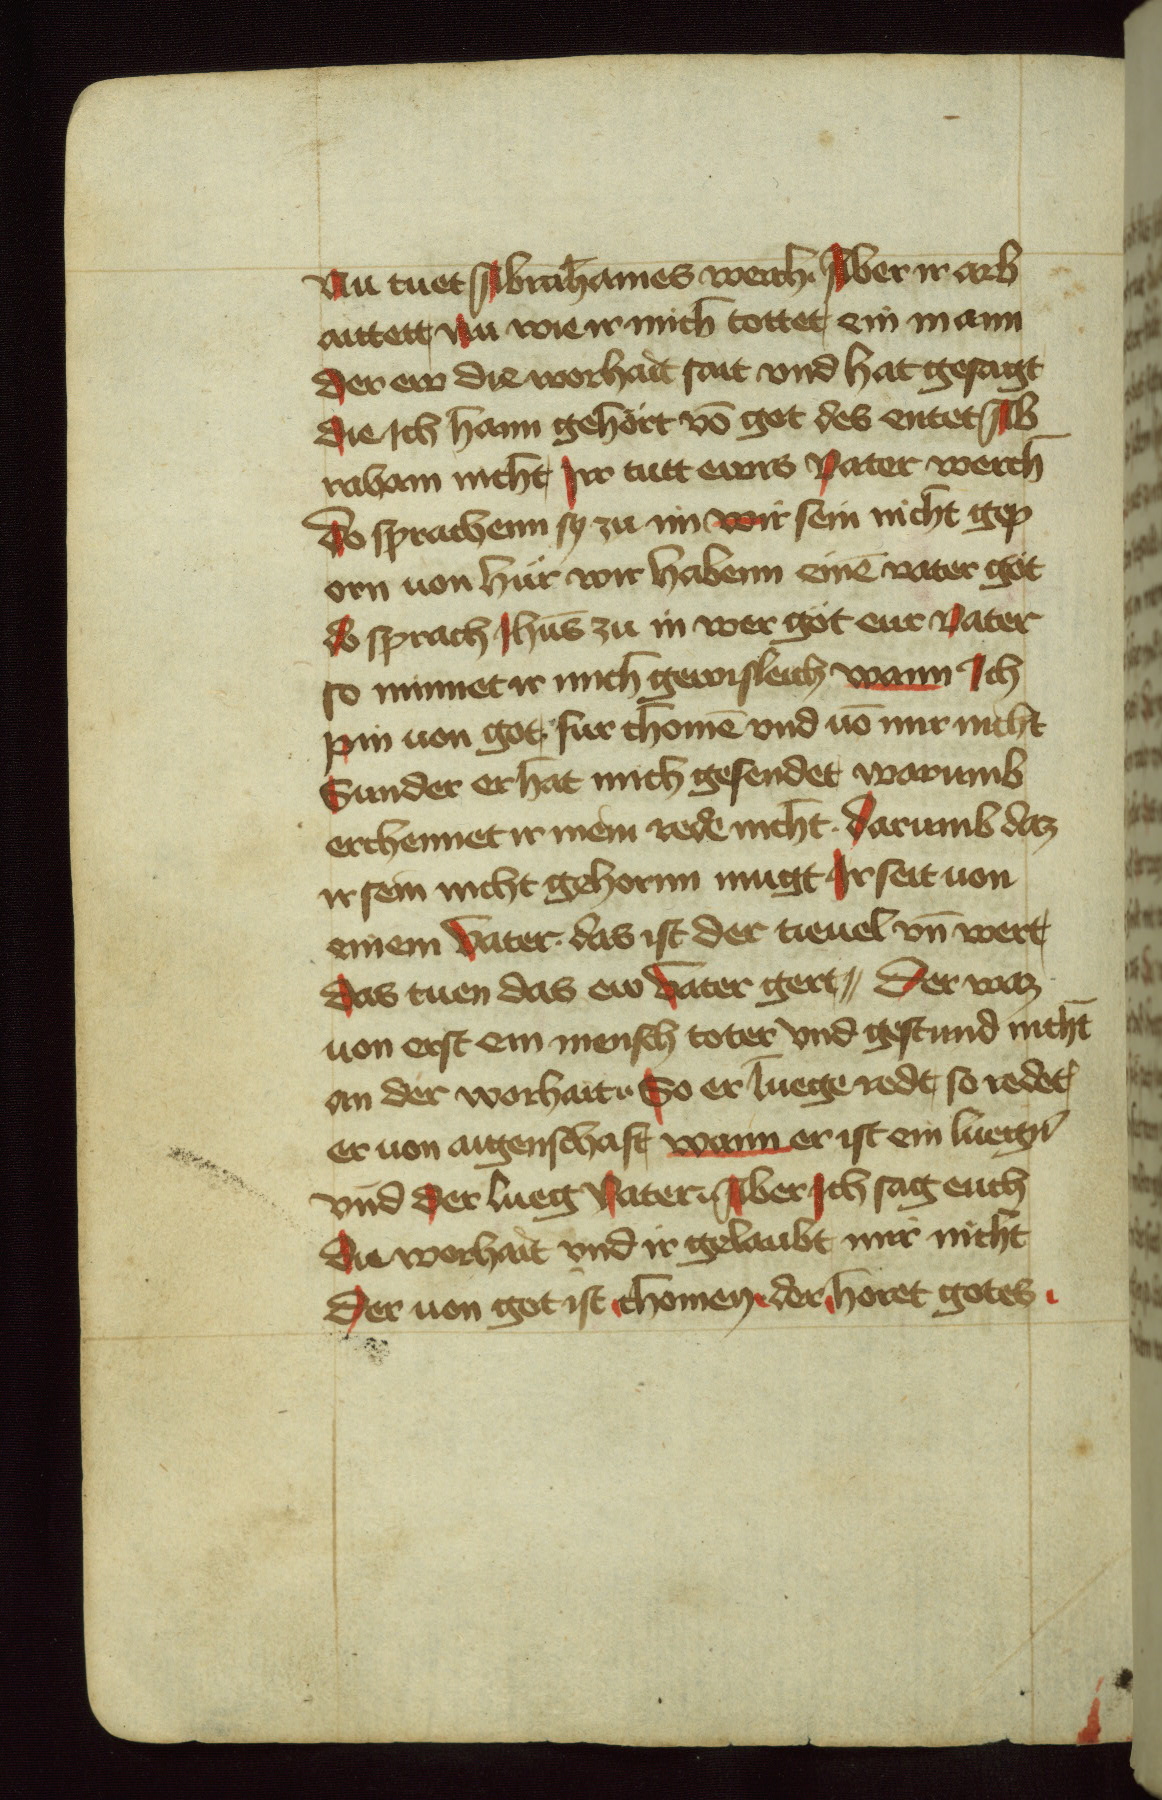 Nu tuet Abrahames werch. Aber ir arb
aittett nu wie ir mich tottet ein mann
der ew die worhait sait vnd hat gesagt
die ich hann gehört vō got des entet Ab
raham nicht Irr tutt ewrs Vater werch
Do sprachenn sÿ zu im wir sein nicht gep
orn uon hür wir habenn einē vater got
do sprach Jhūs zu in wer got eur Vater
so minnet ir mich gewisleich wann Ich
pin uon got fur chomē vnd uō mir nicht
Sunder er hat mich gesendet warumb
erchennet ir mein rede nicht. Darumb daz
ir sein nicht gehornn mugt Ir seit uon
einem Vater. das ist der tieuel vn̄ wert
das tuen das ew Vater gert Der waz
uon erst ein mensch toter vnd gestund nicht
an der worhait. So er luege redt so redet
er uon aigenschaft wann er ist ein luegn̄
vnd der lueg Vater. Aber Ich sag euch
die worhait vnd ir gelaubt mir nicht
Der uon got ist chomen. der horet gotes